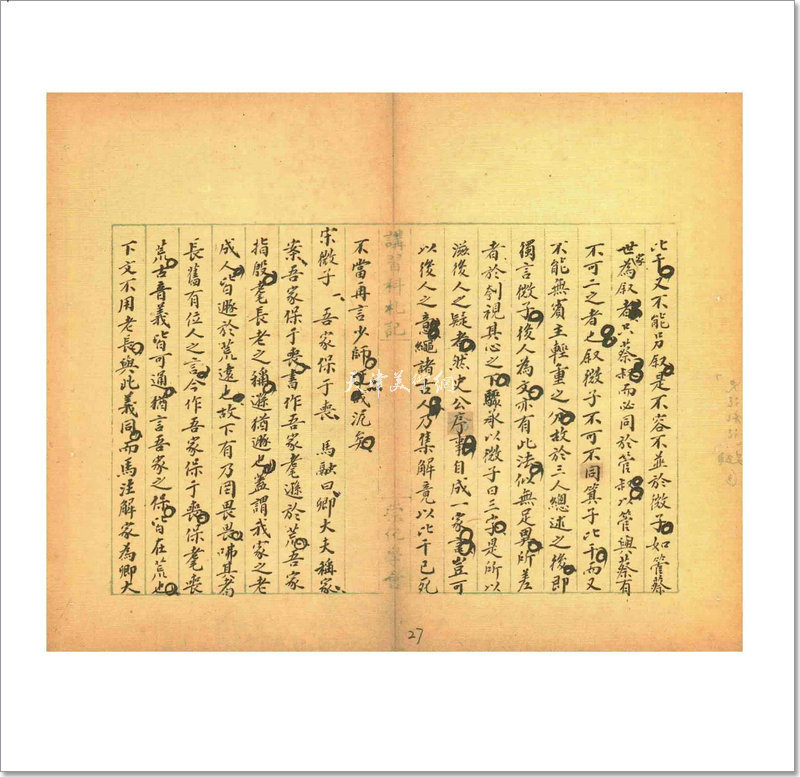 比干又不能另叙是不容不並於微子如管蔡
世家為叙者只蔡叔而必同於管叔以管與蔡有
不可二之者也叙微子不可不同箕子比干而又
不能無賓主輕重之分故於三人總述之後即
獨言微子後人為文亦有此法似無足異所差
者於刳視其心之下驟承以微子曰三字是所以
滋後人之疑者然史公序事自成一家言豈可
以後人之意繩諸古人乃集解竟以比干已死
講習科札記
不當再言少師 泥矣
宋微子 吾家保于喪 馬融曰卿大夫稱家
案吾家保于喪書作吾家耄遜於荒吾家
指殷耄長老之稱遜猶遯也蓋謂我家之老
成人皆遯於荒遠也故下有乃罔畏畏咈其耇
長舊有位人之言今作吾家保于喪保耄喪
荒古音義皆可通猶言吾家之保皆在荒也
下文不用老長與此義同而馬注解家為卿大
27
天津美術網